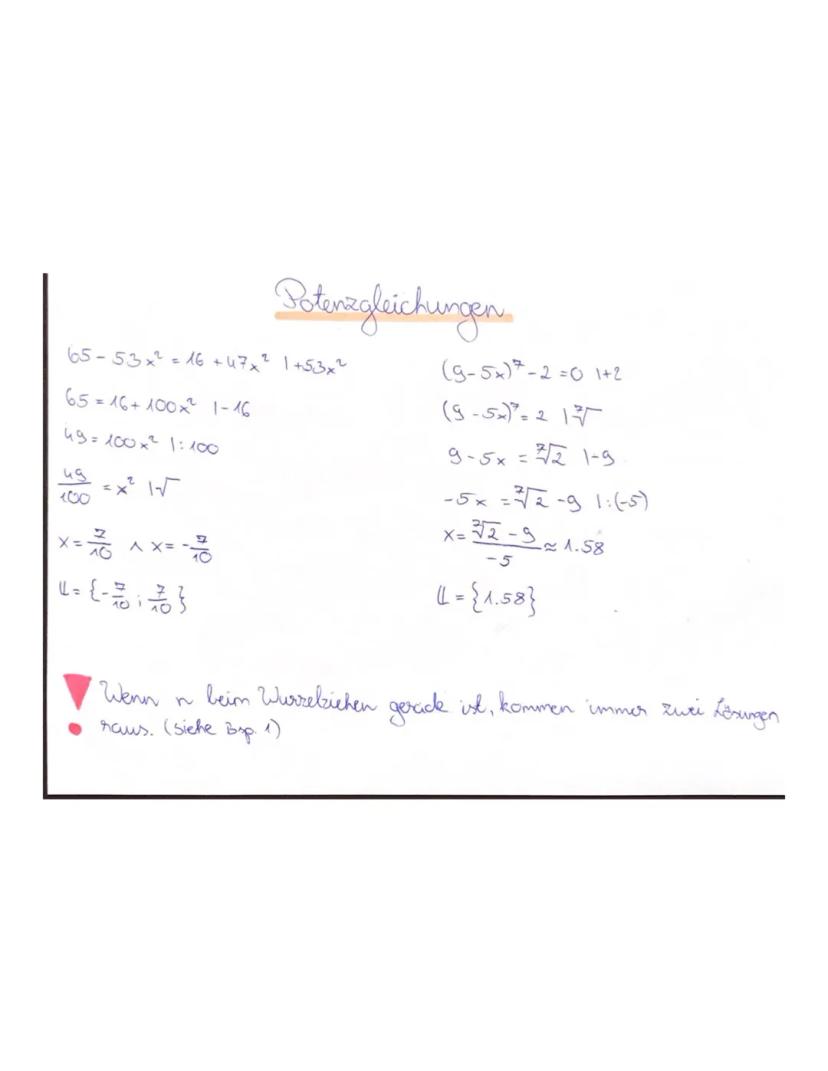 Potenzgleichungen
65 - 53x² = 16 + 47x² |+53x²
65 = 16 + 100x² |-16
49 = 100x² |:100
49/100 = x² |√
x = 7/10 ∧ x = -7/10
𝕃 = {-7/10; 7/10}
(9-5x)⁷ - 2 = 0 |+2
(9-5x)⁷ = 2 |⁷√
9-5x = ⁷√2 |-9
-5x = ⁷√2 - 9 |:(-5)
x = (⁷√2 - 9)/-5 ≈ 1.58
𝕃 = {1.58}
! Wenn n beim Wurzelziehen gerade ist, kommen immer zwei Lösungen
raus. (siehe Bsp. 1)